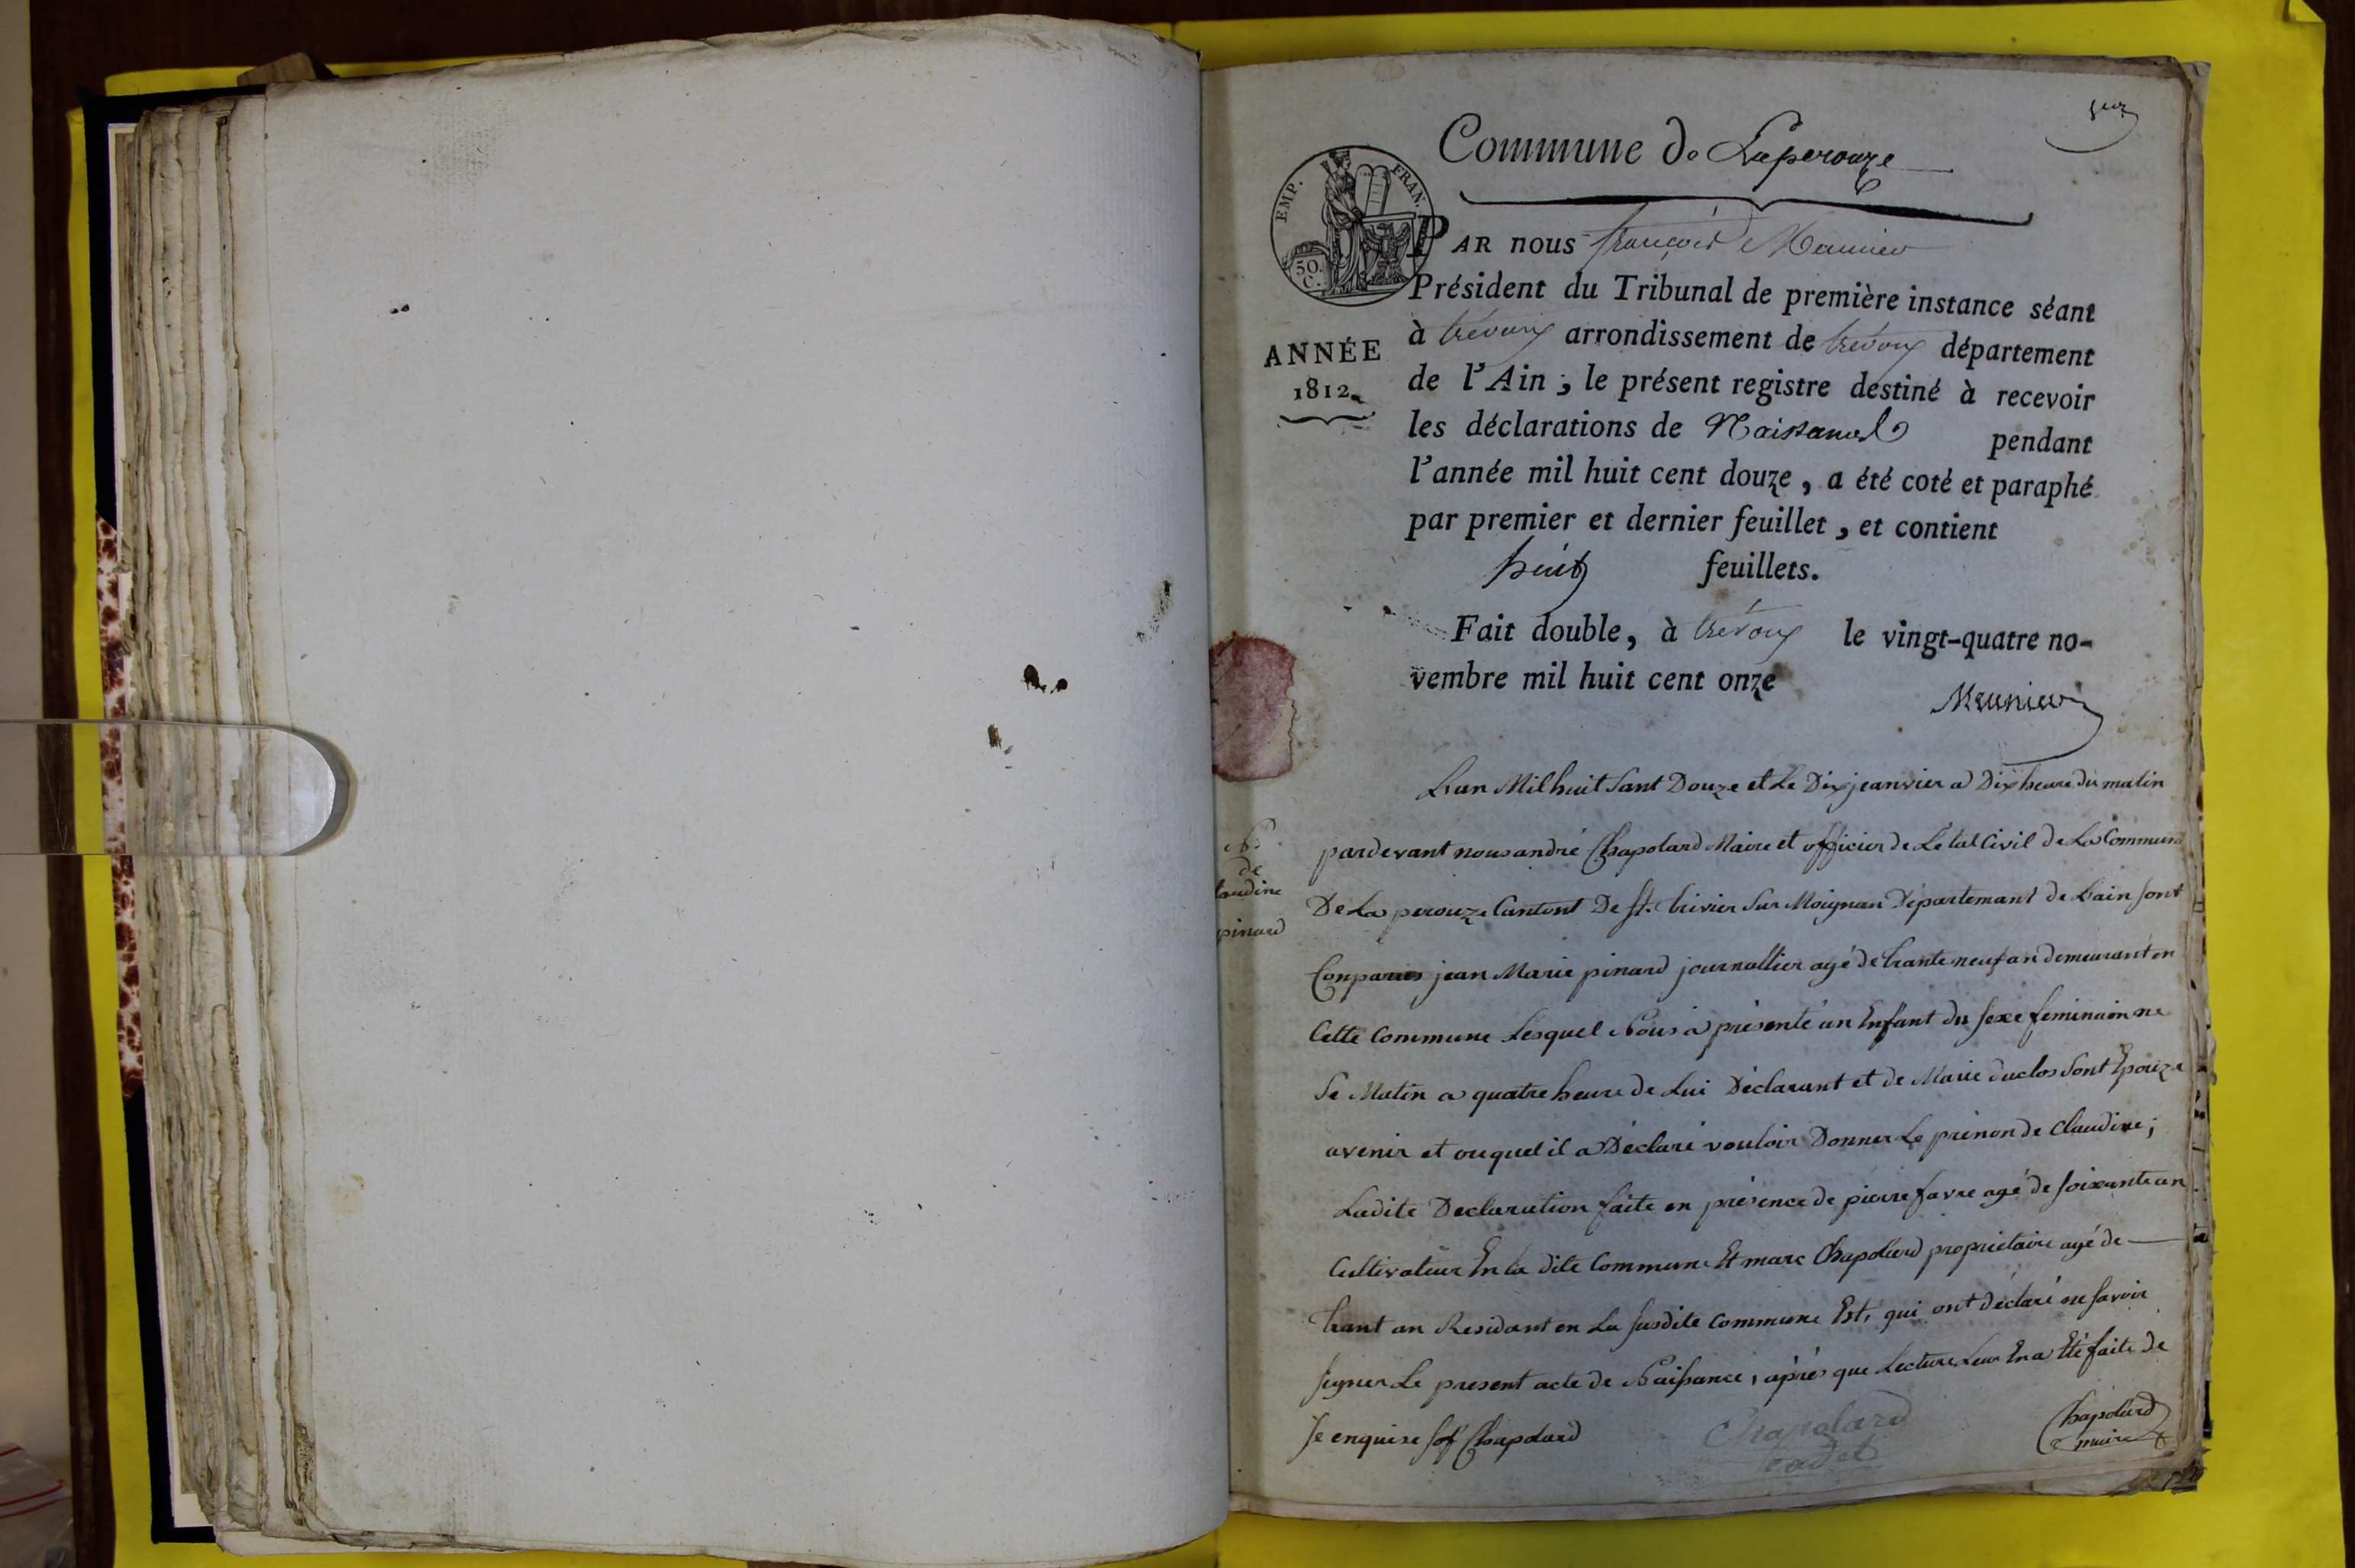 Commune de Laperouze
EMP. FRAN.
50.
C.
PAR nous françois Meunier
Président du Tribunal de première instance séant
à trévoux arrondissement de trévoux département
ANNÉE
1812.
de l'Ain ; le présent registre destiné à recevoir
les déclarations de Naissance pendant
l'année mil huit cent douze, a été coté et paraphé
par premier et dernier feuillet, et contient
huit feuillets.
Fait double, à trévoux le vingt-quatre no-
vembre mil huit cent onze
Meunier
Lan Mil huit Sant Douze et Le Dix jeanvier a Dix heure du matin
pardevant nous andré Chapolard Maire et officier de Létat Civil de La Commune
De La perouze Cantont De st. trivier Sur Moignan Départemant de Lain sont
Conparus jean Marie pinard journallier agé de trante neuf an demeurant en
Cette Commune Lesquel Nous a présenté un Enfant du sexe feminin ne
Se Matin a quatre heure de Lui Déclarant et de Marie duclos Sont Epouze
avenir et ouquel il a Déclaré vouloir Donner Le prénon de Claudine ;
Ladite Declaration faite en présence de pierre favre agé de soixante an
Cultivateur En la dite Commune Et marc Chapolard propriétaire agé de
trant an Residant en La susdite Commune Est, qui ont déclaré en savoir
signer Le present acte de Naissance, après que Lecture Leur En a Eté faite de
Se enquire sof Chapolard
Chapolard
cadet
Chapolard
maire
N.
de
laudine
pinard